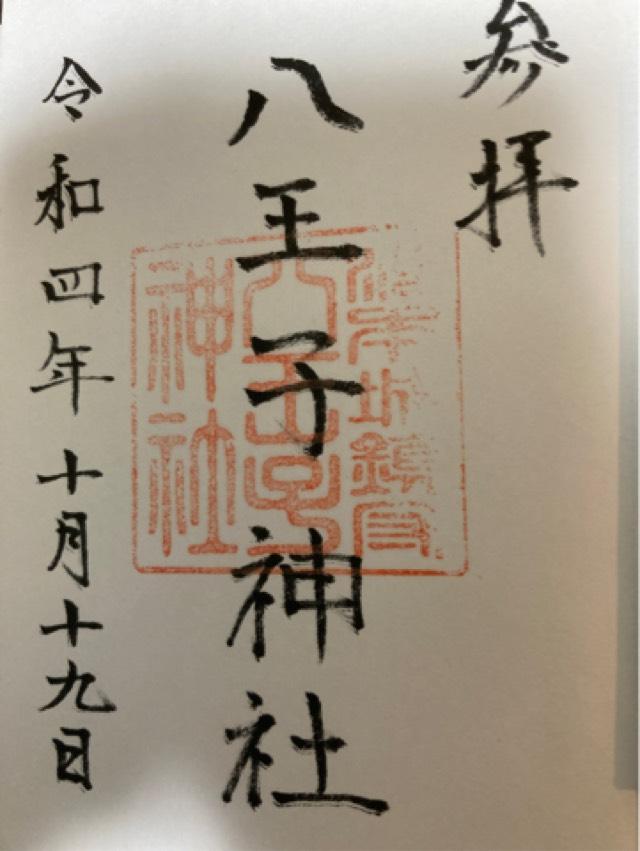 参拝
八王子神社
令和四年十月十九日
八王子
神社